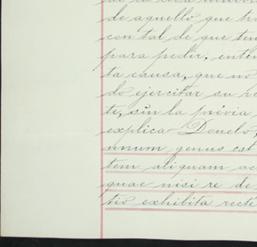 de aquello que ha
con tal de que ten
para pedir, enten
ta causa, que no
do ejercitar su
te, sin la prévia
explica Donelo,
unum genus est
tem aliquam ac
quae nisi re de
tio exhibita recte